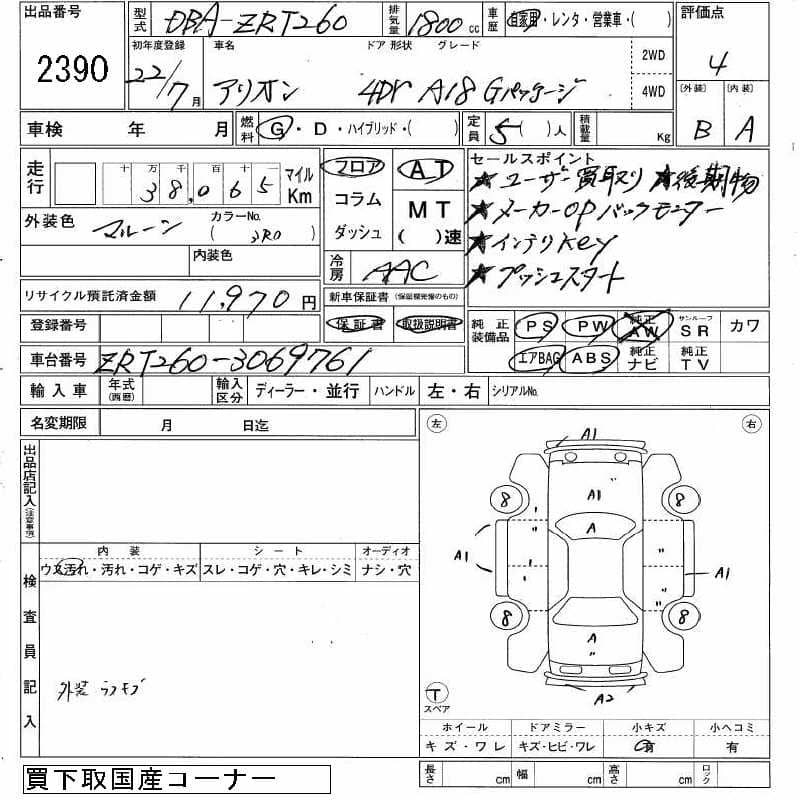 出品番号
2390
型式
DBA-ZRT260
排気量
1800 cc
車歴
自家用・レンタ・営業車・( )
評価点
4
初年度登録
22/7月
車名
アリオン
ドア 形状
4Dr
グレード
A18 Gパッケージ
2WD
4WD
〔外装〕
B
〔内装〕
A
車検 年 月
燃料
G・D・ハイブリッド・( )
定員
5( )人
積載量
Kg
走行
十 万 千 百 十
38,065
マイル
Km
フロア
コラム
ダッシュ
AT
MT
( )速
セールスポイント
★ユーザー買取り ★後期物
★メーカーOPバックモニター
★インテリkey
★プッシュスタート
外装色
マルーン
カラーNo.
( 3R0 )
内装色
冷房
AAC
リサイクル預託済金額
11,970円
新車保証書(保証継続後のもの)
保証書
取扱説明書
登録番号
純正装備品
PS
PW
純正AW
サンルーフ
SR
カワ
エアBAG
ABS
純正ナビ
純正TV
車台番号
ZRT260-3069761
輸入車
年式
(西暦)
輸入区分
ディーラー・並行
ハンドル
左・右
シリアルNo.
名変期限 月 日迄
出品店記入(注意事項)
左
右
A1
A1
A
8
8
A1
A1
8
8
A
A2
T
スペア
検査員記入
内装
ウス汚れ・汚れ・コゲ・キズ
シート
スレ・コゲ・穴・キレ・シミ
オーディオ
ナシ・穴
外装
ホイール
キズ・ワレ
ドアミラー
キズ・ヒビ・ワレ
小キズ
有
小ヘコミ
有
長さ cm
幅 cm
高さ cm
ロック
買下取国産コーナー